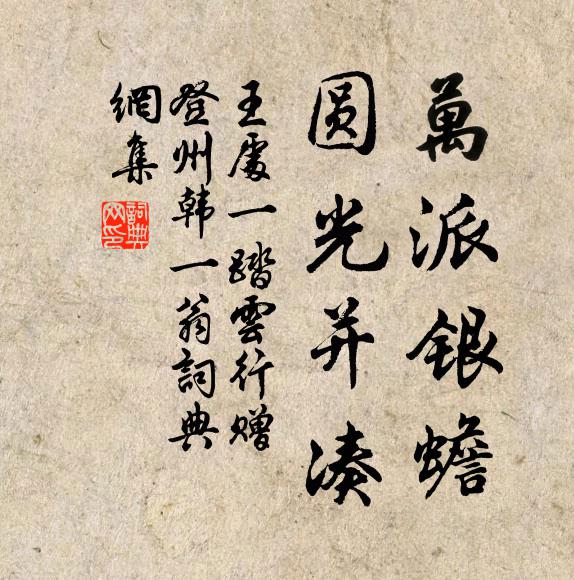 萬派銀蟾
圆光并湊
王處一踏雲行赠
登州韩一翁詞典
網集
詞典網印